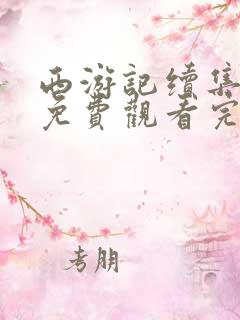 西游記續集
免費觀看完
考朋